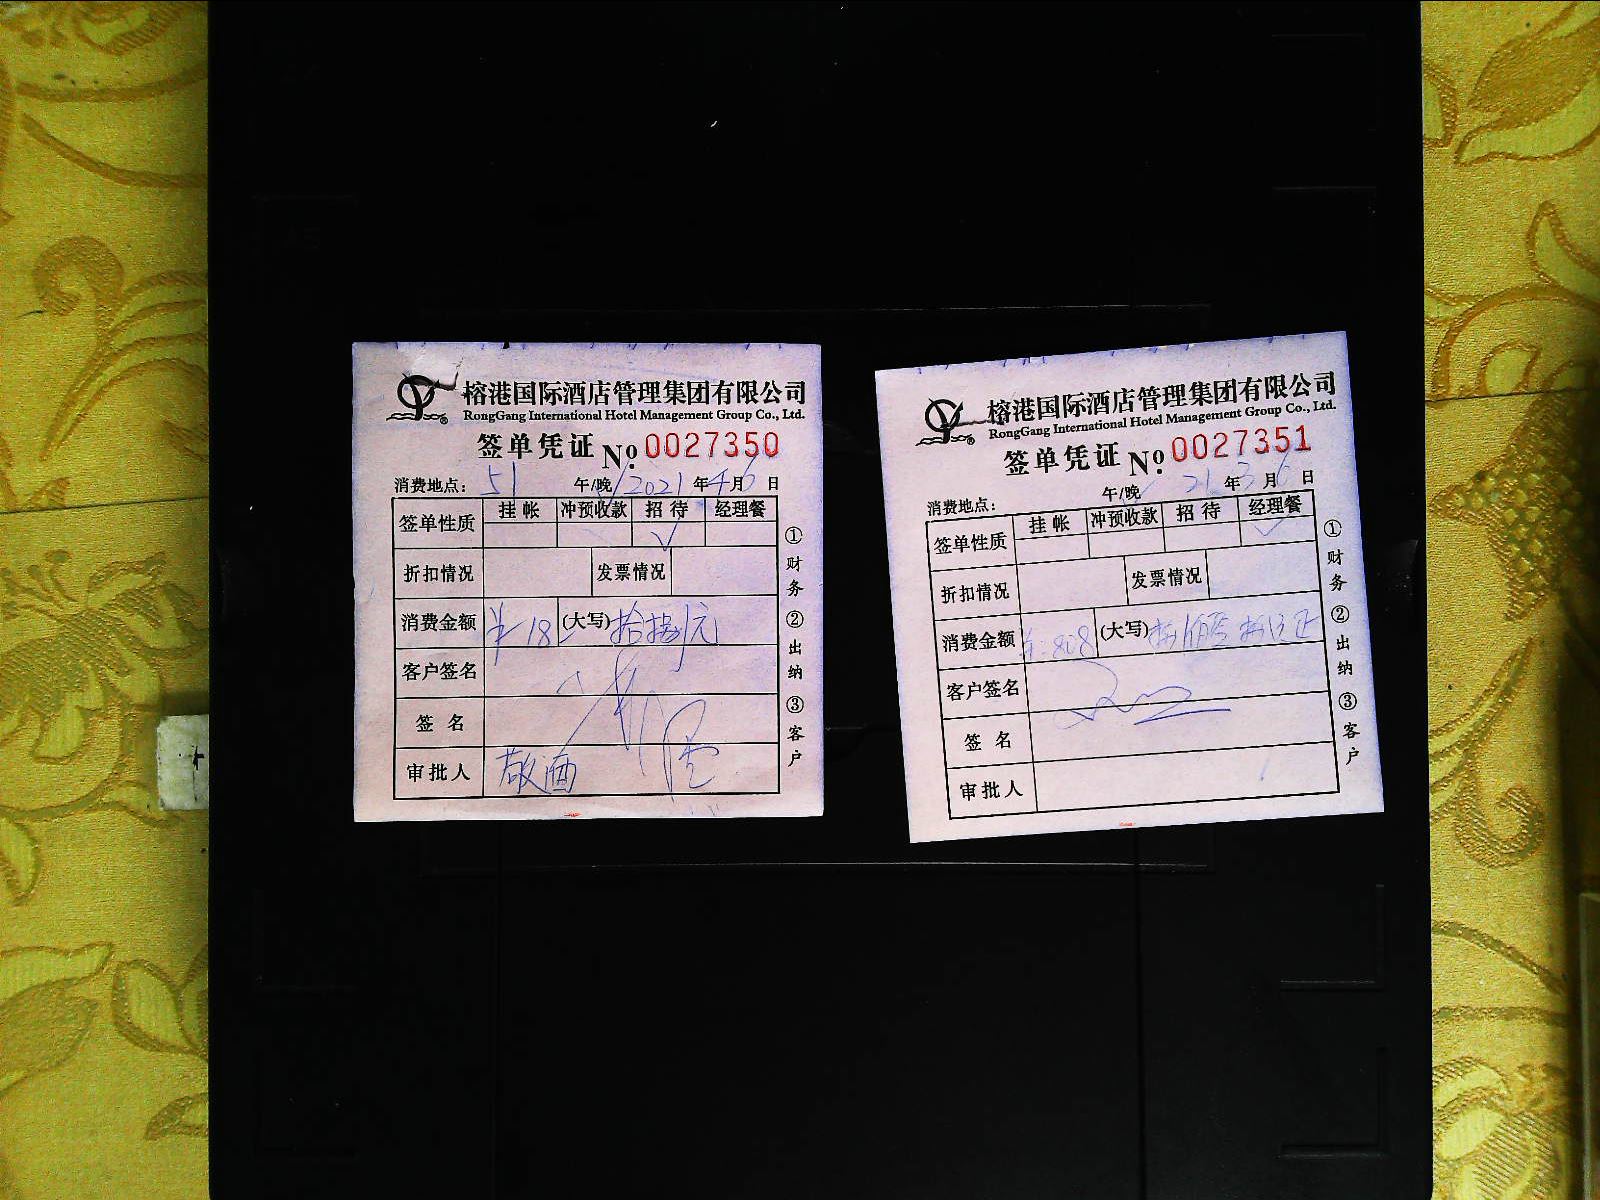 榕港国际酒店管理集团有限公司
RongGang International Hotel Management Group Co., Ltd.
签单凭证 No. 0027350
消费地点: 51 午/晚 2021年4月6日
签单性质 挂帐 冲预收款 招待 ✓ 经理餐
折扣情况 发票情况
消费金额 ¥18 (大写) 拾捌元
客户签名
签名
审批人 敬酒
①财务 ②出纳 ③客户
榕港国际酒店管理集团有限公司
RongGang International Hotel Management Group Co., Ltd.
签单凭证 No. 0027351
消费地点: 午/晚 21年3月6日
签单性质 挂帐 冲预收款 招待 经理餐 ✓
折扣情况 发票情况
消费金额 ¥:808 (大写)
客户签名
签名
审批人
①财务 ②出纳 ③客户